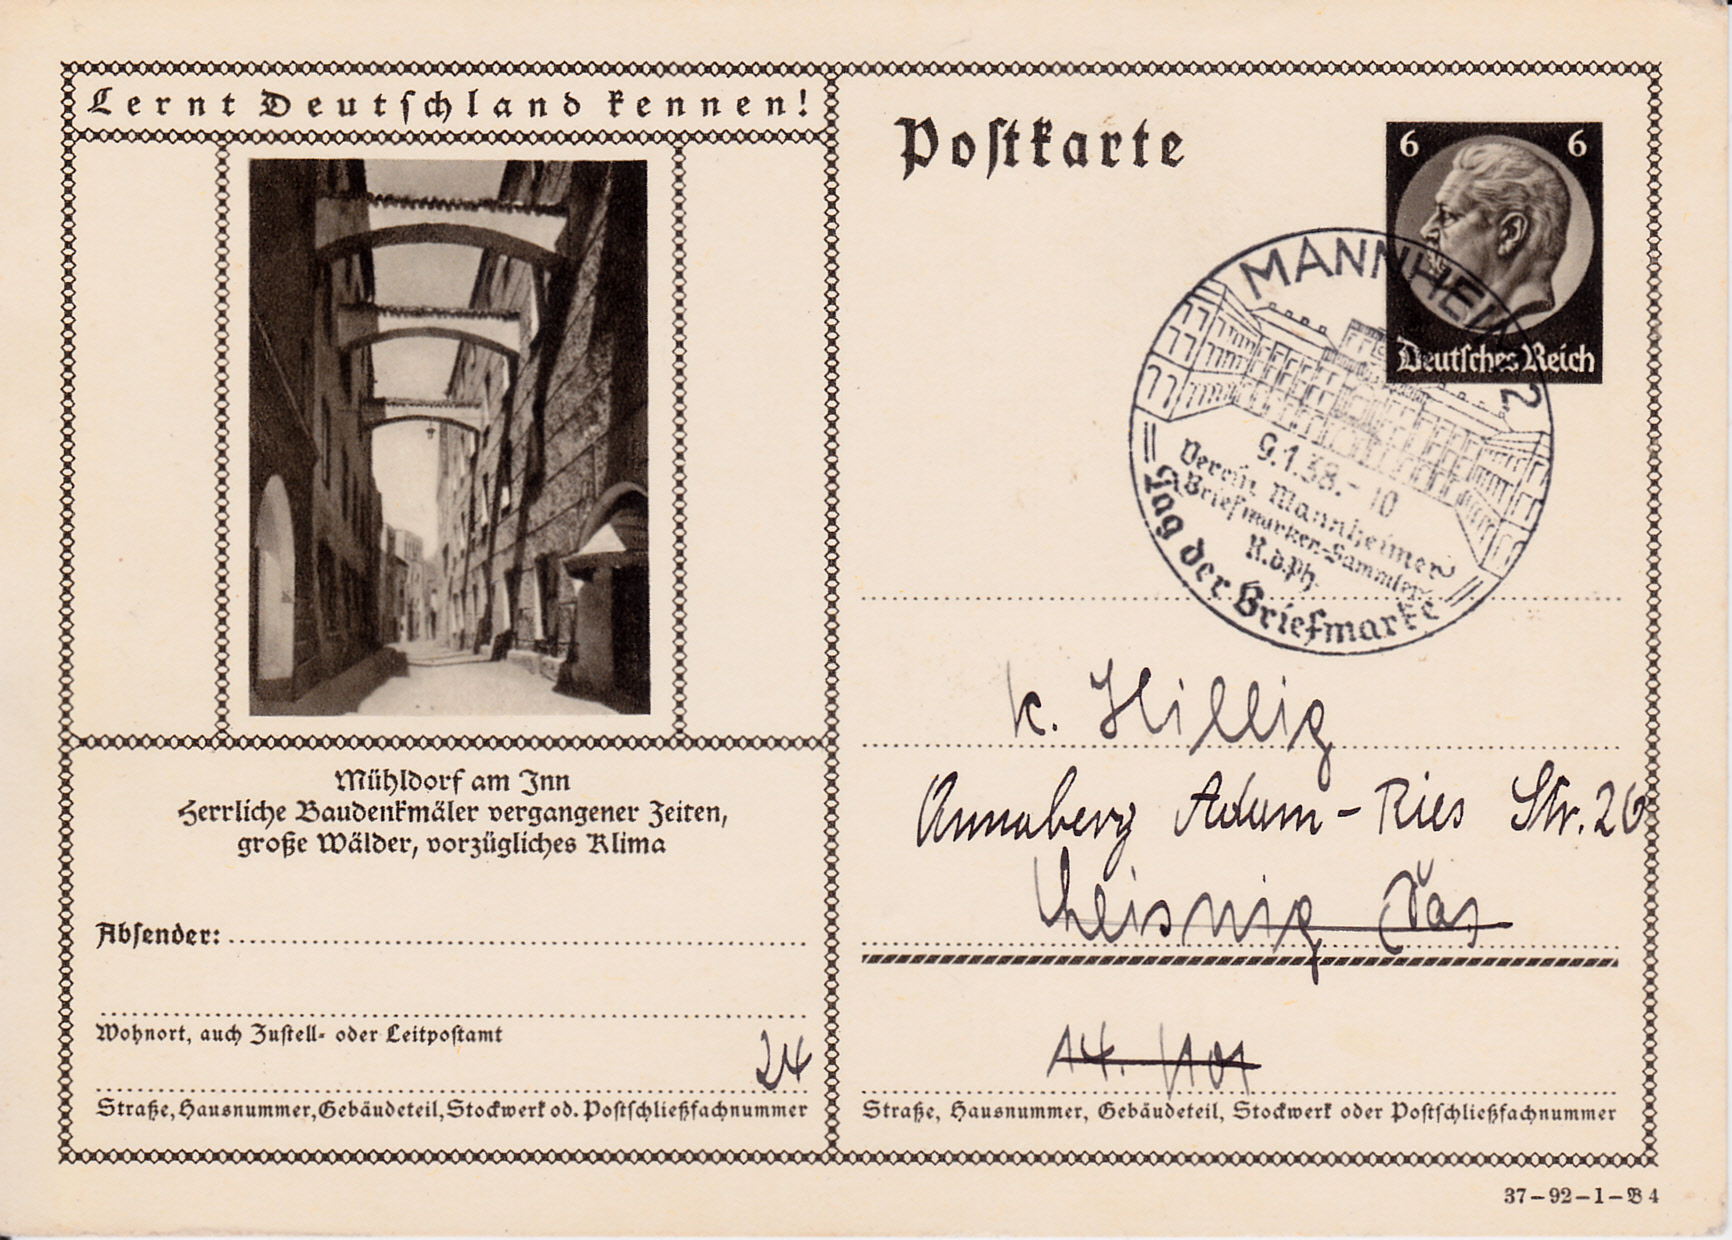 Lernt Deutschland kennen!
Mühldorf am Inn
Herrliche Baudenkmäler vergangener Zeiten,
große Wälder, vorzügliches Klima
Absender:
Wohnort, auch Zustell- oder Leitpostamt
24
Straße, Hausnummer, Gebäudeteil, Stockwerk od. Postschließfachnummer
Postkarte
6 6
Deutsches Reich
MANNHEIM 2
9.1.38.-10
Verein Mannheimer
Briefmarken-Sammler
R.d.Ph.
Tag der Briefmarke
K. Hillig
Annaberg Adam-Ries Str. 26
Leisnig
14.
Straße, Hausnummer, Gebäudeteil, Stockwerk oder Postschließfachnummer
37-92-1-B 4